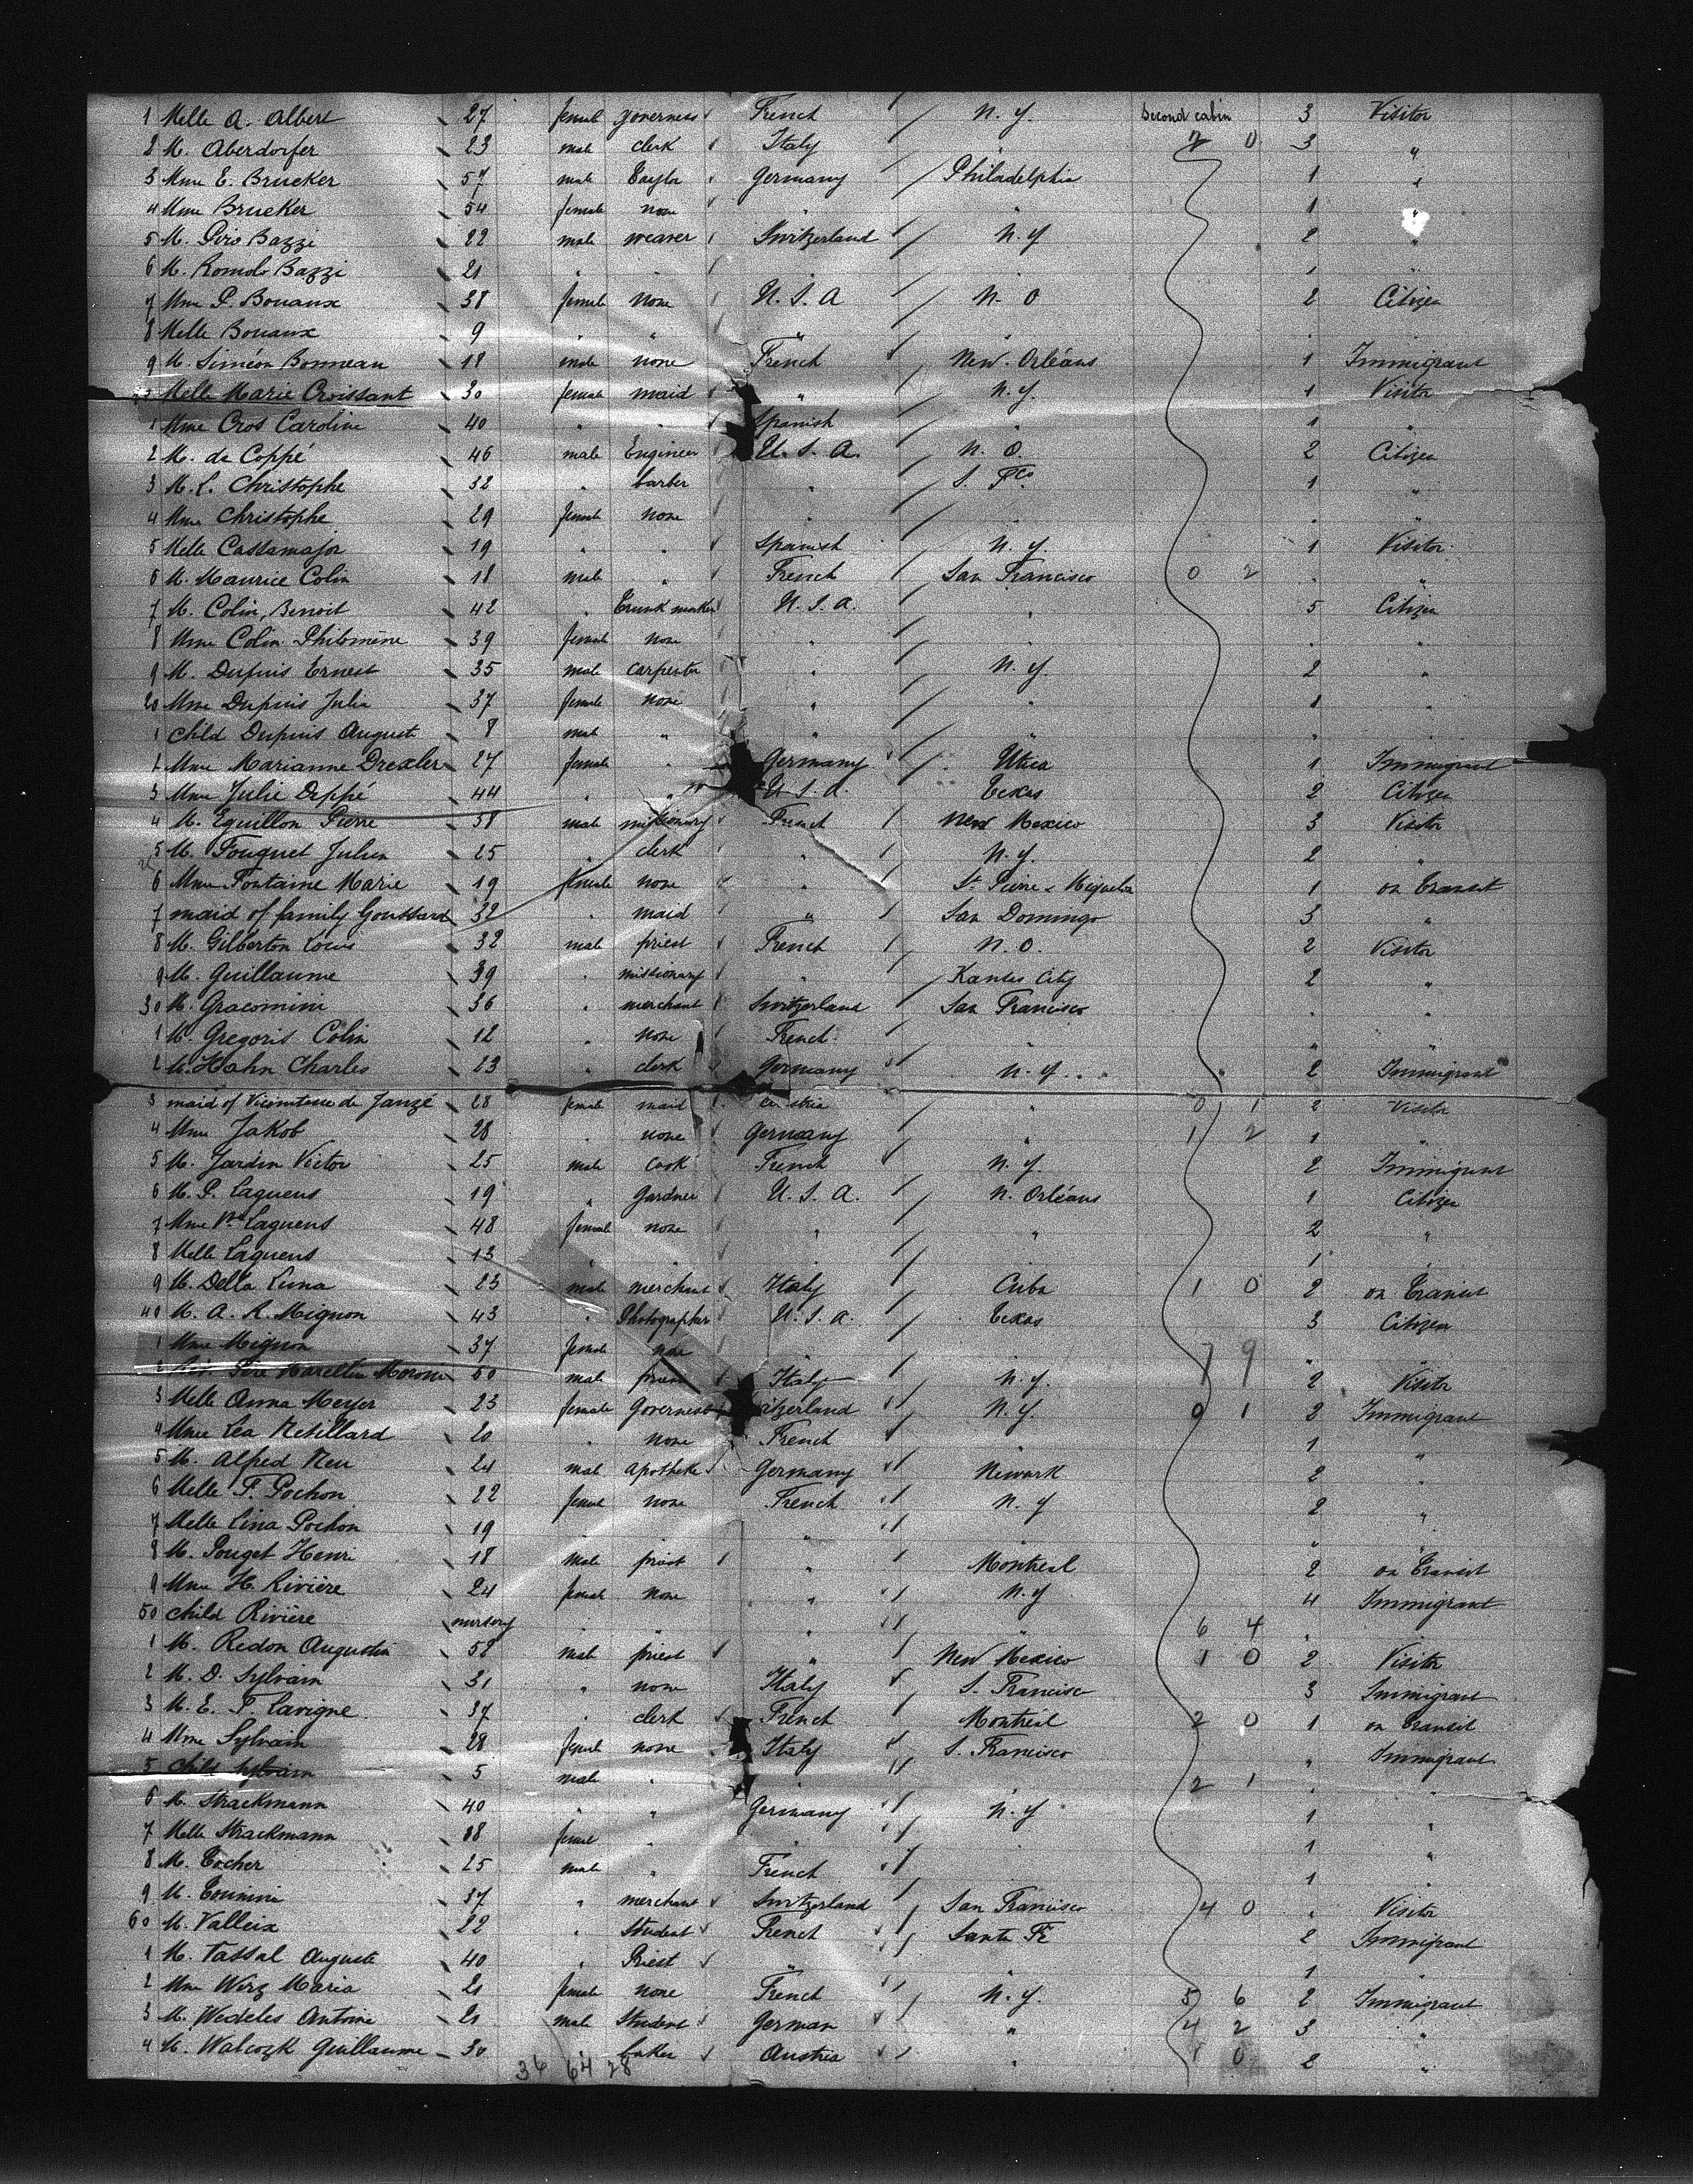 1 Melle A. Albert 27 female governess French N. Y. Second cabin 3 Visitor
2 M. Aberdorfer 23 male clerk Italy " 2 0 3 "
3 Mme E. Brucker 57 male Taylor Germany Philadelphia 1 "
4 Mme Brucker 54 female none " " 1 "
5 M. Piro Bazzi 22 male weaver Switzerland N. Y 2 "
6 M. Romolo Bazzi 21 " " " " 1 "
7 Mme P. Bouaux 38 female none U. S. A N. O 2 Citizen
8 Melle Bouaux 9 " " " " " "
9 M. Siméon Bonneau 18 male none French New. Orléans 1 Immigrant
Melle Marie Croissant 30 female maid " N. Y. 1 Visitor
1 Mme Cros Caroline 40 " " Spanish " 1 "
2 M. de Coppé 46 male Engineer U. S. A. N. O. 2 Citizen
3 M. L. Christophe 32 " barber " S. Fco 1 "
4 Mme Christophe 29 female none " " " "
5 Melle Cassamajor 19 " " Spanish N. Y. 1 Visitor
6 M. Maurice Colin 18 male " French San Francisco 0 2 " "
7 M. Colin, Benoit 42 " Trunk maker U. S. A. " 5 Citizen
8 Mme Colin Philomène 39 female none " " " "
9 M. Dupuis Ernest 35 male carpenter " N. Y. 2 "
20 Mme Dupuis Julia 37 female none " " 1 "
1 child Dupuis August 8 male " " " " "
2 Mme Marianne Drexler 27 female " Germany Utica 1 Immigrant
3 Mme Julie Deppé 44 " " U. S. A. Texas 2 Citizen
4 M. Eguillon Pierre 58 male missionary French New Mexico 3 Visitor
5 M. Fouquet Julien 25 " clerk " N. Y. 2 "
6 Mme Fontaine Marie 19 female none " St Pierre & Miquelon 1 on Transit
7 maid of family Goussard 32 " maid " San Domingo 3 "
8 M. Gilberton Louis 32 male priest French N. O. 2 Visitor
9 M. Guillaume 39 " missionary " Kansas City 2 "
30 M. Giacomini 36 " merchant Switzerland San Francisco " "
1 M. Gregoris Colin 12 " none French " " "
2 M. Hahn Charles 23 " clerk Germany N. Y. 2 Immigrant
3 maid of Vicomtesse de Janzé 28 female maid " 0 1 2 Visitor
4 Mme Jakob 28 " none Germany " 1 2 1 "
5 M. Jardin Victor 25 male cook French N. Y. 2 Immigrant
6 M. P. Laguens 19 " Gardner U. S. A. N. Orléans 1 Citizen
7 Mme Ve Laguens 48 female none " " 2 "
8 Melle Laguens 13 " " " " 1 "
9 M. Della Luna 23 male merchant Italy Cuba 1 0 2 on Transit
40 M. A. R. Mignon 43 " Photographer U. S. A. Texas 3 Citizen
1 Mme Mignon 37 female none " " 7 9 " "
2 Père Marcellin 60 male Italy N. Y. 2 Visitor
3 Melle Anna Meyer 23 female Governess itzerland N. Y. 0 1 2 Immigrant
4 Mme Lea Retillard 20 " none French " 1 "
5 M. Alfred Neu 24 male apotheke Germany Newark 2 "
6 Melle F. Pochon 22 female none French N. Y 2 "
7 Melle Lina Pochon 19 " " " " " "
8 M. Pouget Henri 18 male priest " Montreal 2 on Transit
9 Mme H. Rivière 24 female none " N. Y 4 Immigrant
50 child Rivière nursery " " " " 6 4 "
1 M. Redon Augustin 52 male priest " New Mexico 1 0 2 Visitor
2 M. D. Sylvain 31 " none Italy S. Francisco 3 Immigrant
3 M. E. F. Lavigne 37 " clerk French Montréal 2 0 1 on Transit
4 Mme Sylvain 28 female none Italy S. Francisco " Immigrant
5 child Sylvain 5 male " " " 2 1 " "
6 M. Strackmann 40 " " Germany N. Y 1 "
7 Melle Strackmann 18 female " " " 1 "
8 M. Tocher 25 male " French " 1 "
9 M. Tounini 37 " merchant Switzerland San Francisco 4 0 " Visitor
60 M. Valleix 22 " Student French Santa Fé 2 Immigrant
1 M. Vassal Auguste 40 " Priest " " 1 "
2 Mme Wirz Maria 21 female none French N. Y. 5 6 2 Immigrant
3 M. Wedeles Antoine 21 male Student German " 4 2 3 "
4 M. Walcozk Guillaume 30 " baker Austria " 1 0 2 "
36 64 28